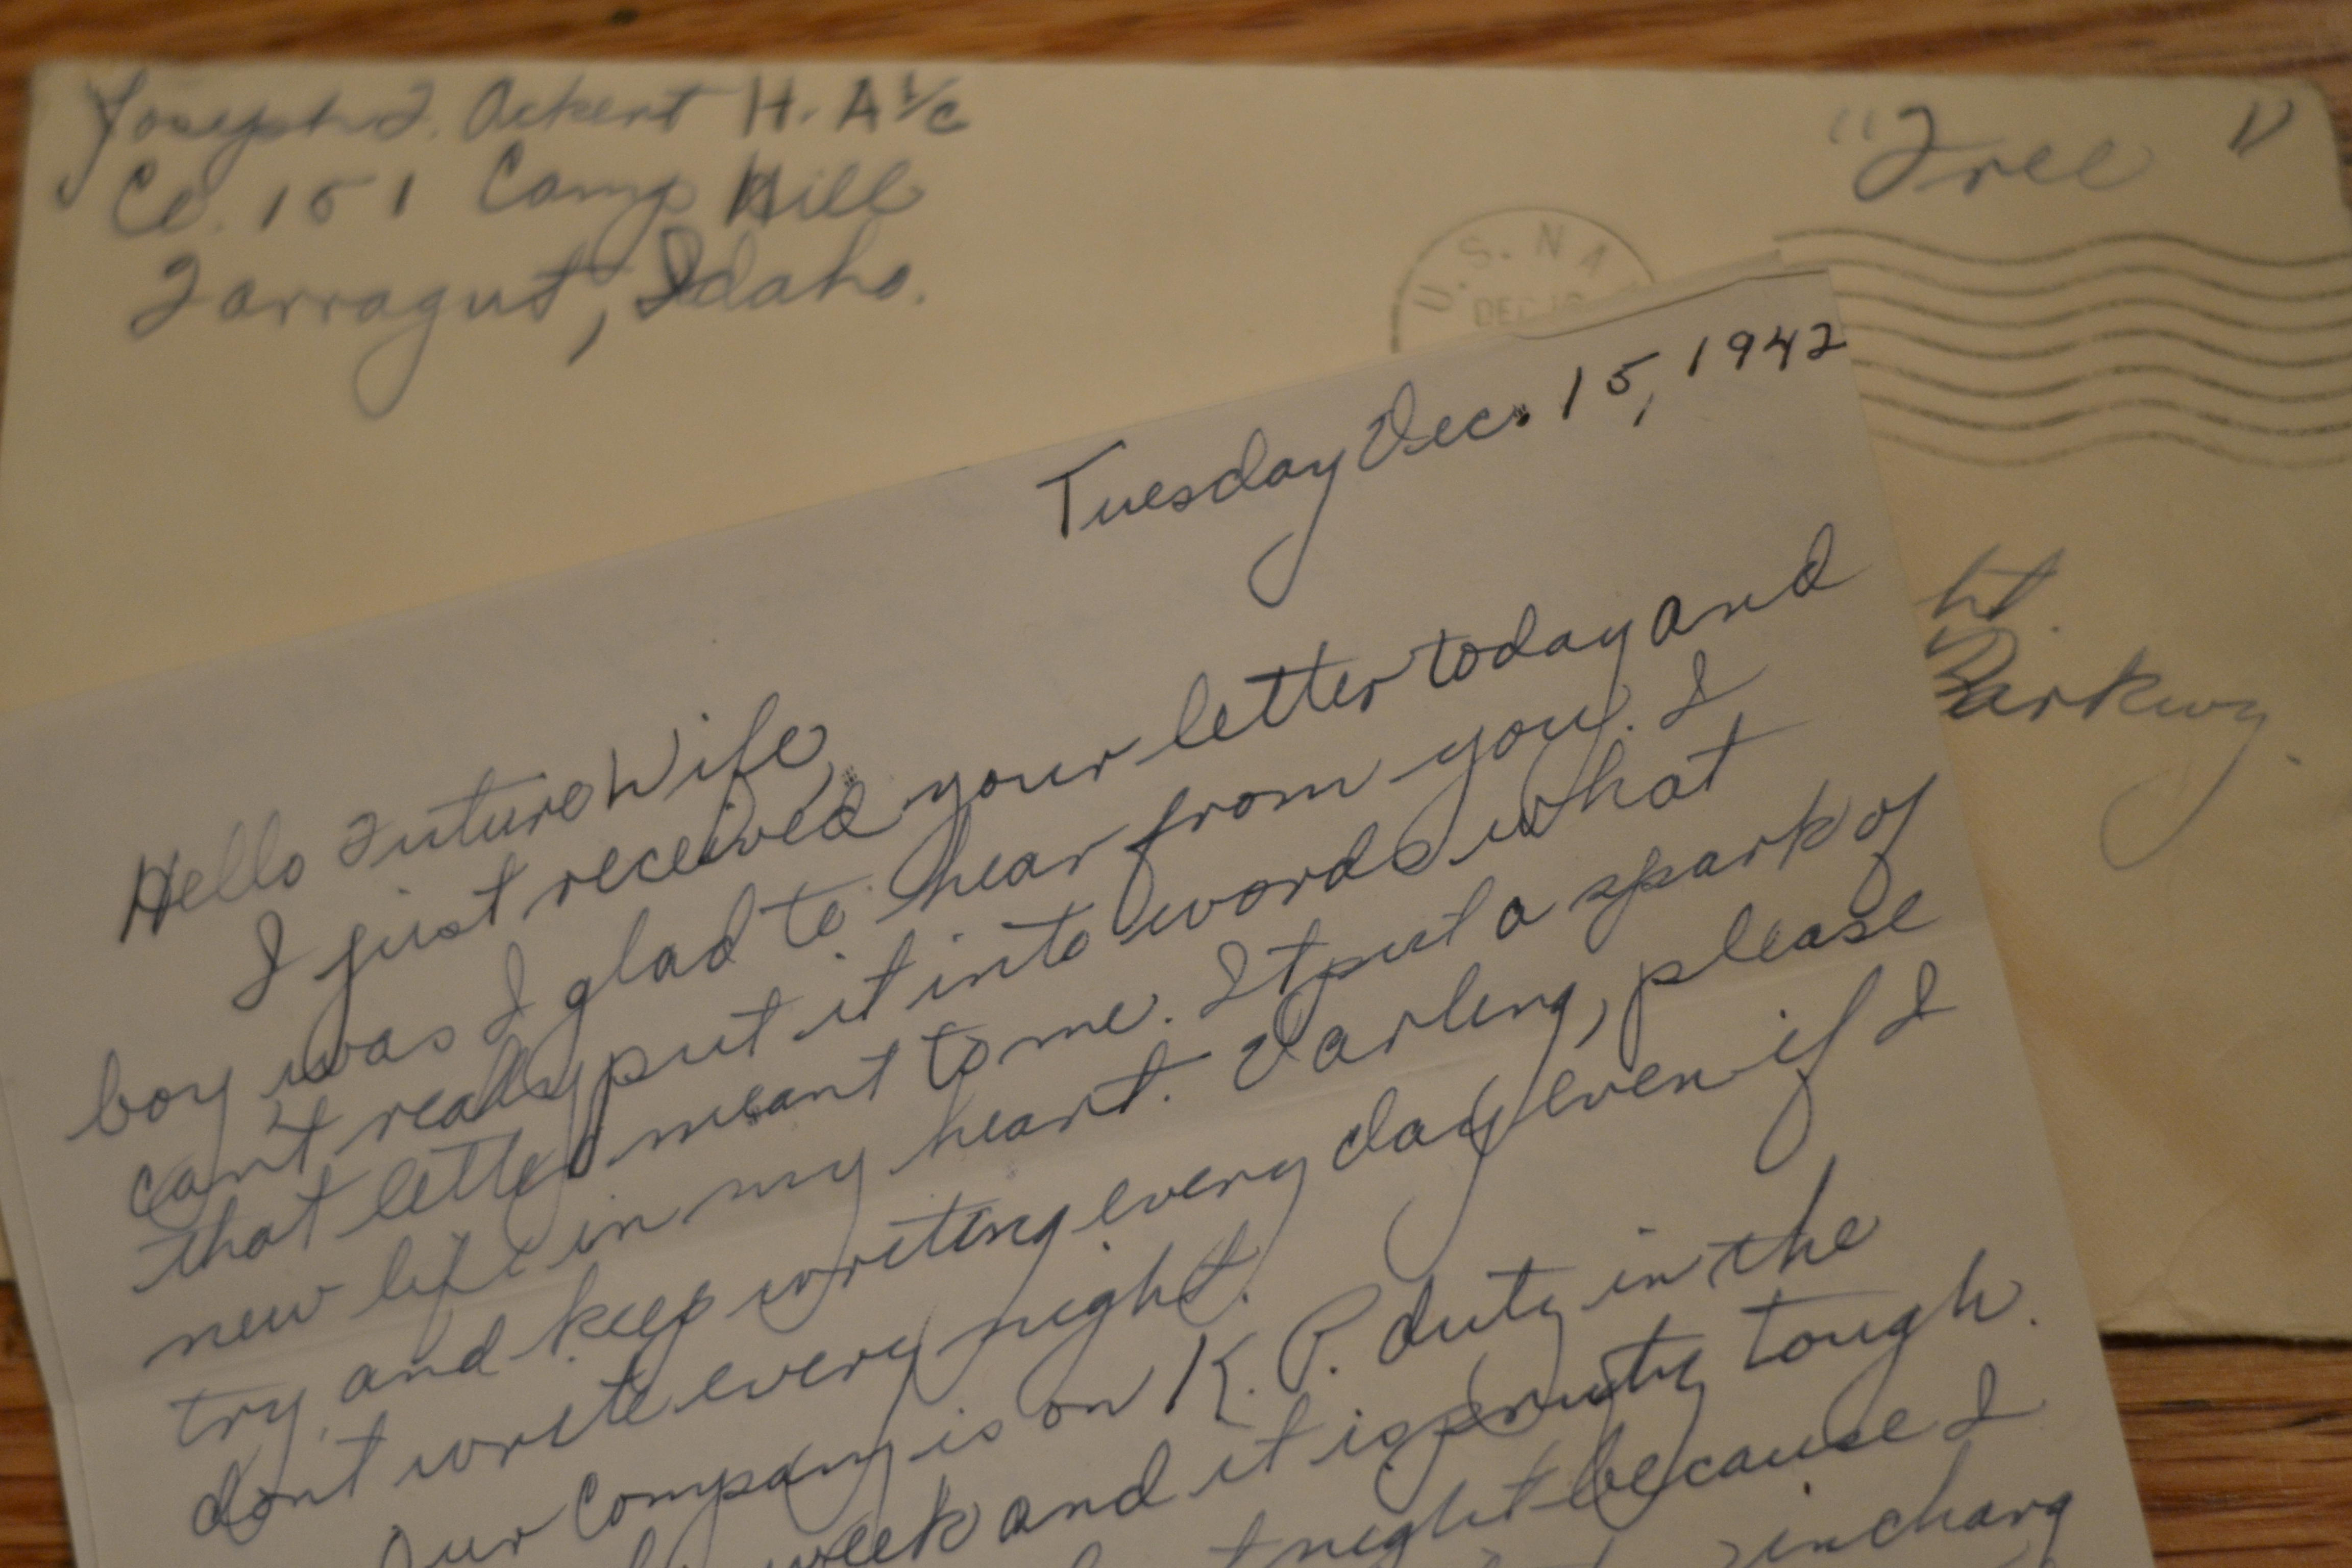 Joseph F. Ackert H. A 1/c
Co. 151 Camp Hill
Farragut, Idaho.
"Free"
U.S. NA
DEC
Parkwy.
Tuesday Dec. 15, 1942
Hello Future Wife,
I just received your letter today and
boy was I glad to hear from you. I
can't really put it into words what
that letter meant to me. It put a spark of
new life in my heart. Darling, please
try and keep writing every day even if I
dont write every night.
Our Company is on K. P. duty in the
week and it is pruty tough.
night because I
incharg